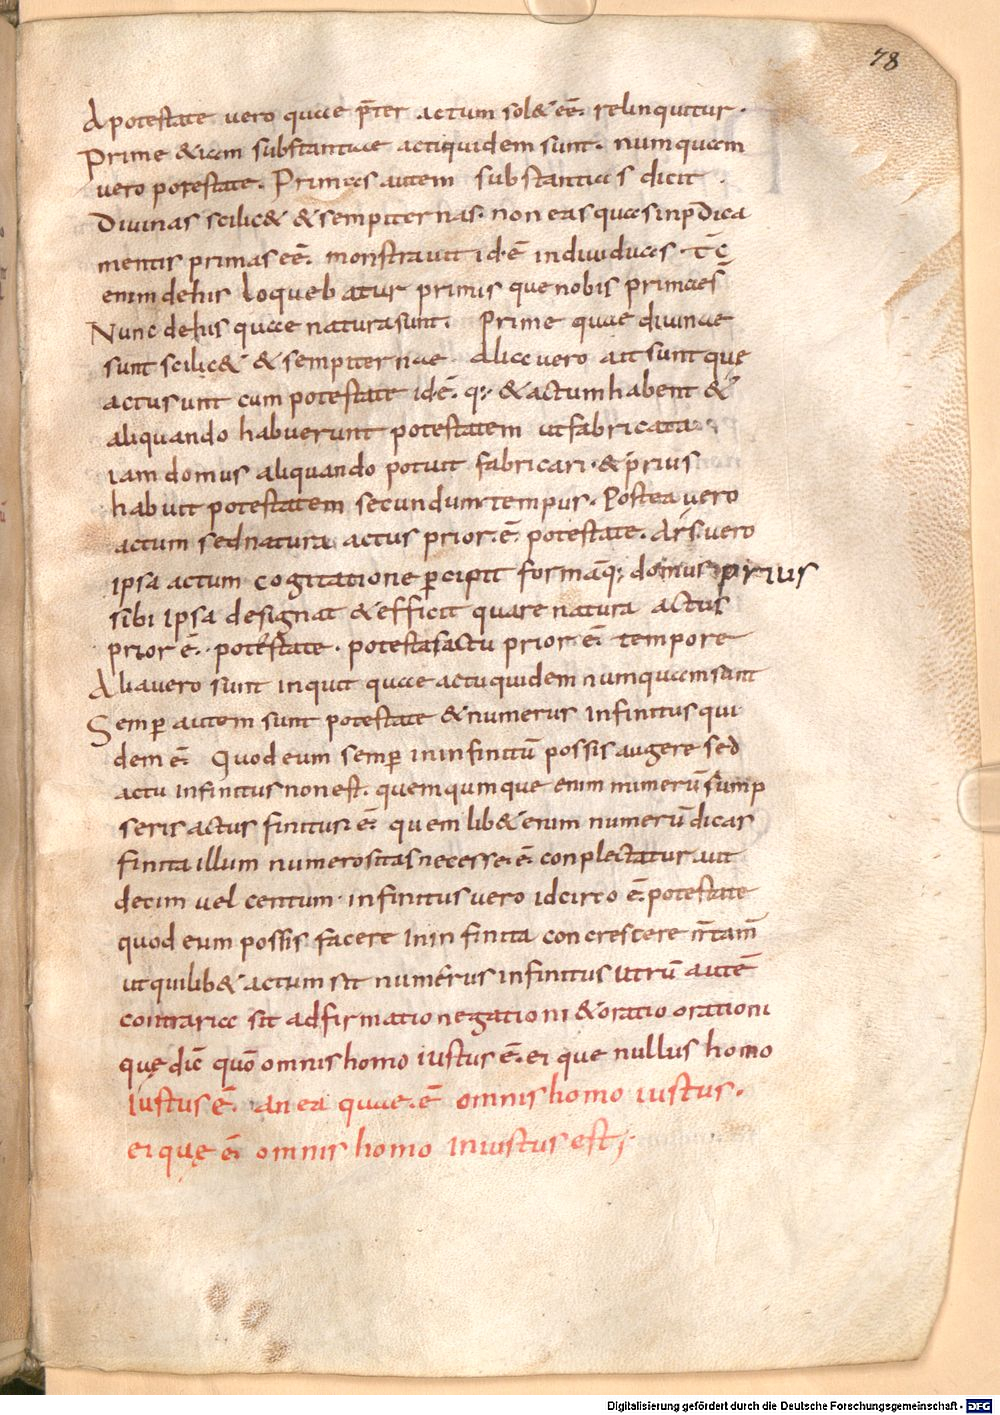 78
A potestate vero quae p̄ter actum sol& eē. relinquitur.
Prime &iam substantiae actiquidem sunt. numquam
vero potestate. Primas autem substantias dicit.
Diuinas scilic& & sempiternas. non eas quas inp̄dica
mentis primas eē. monstrauit id·ē indiuiduas. Tc̄
enim dehis loquebatur primis que nobis primaes̄
Nunc dehis quae natura sunt. Prime quae diuinae
sunt scilic& & sempiternae. Aliae vero ait sunt quę
actu sunt cum potestate id·ē. q; & actum habent &
aliquando habuerunt potestatem ut fabricata
iam domus aliquando potuit fabricari. & prius
habuit potestatem secundum tempus. Postea vero
actum sed natura actus prior.ē. potestate. Ars vero
ipsa actum cogitatione p̄cipit formāq; domus prius
sibi ipsa designat & efficit quare natura actus
prior ē. potestate. potestas actu prior ē. tempore
Alia vero sunt inquit quae actu quidem numquam sunt
Semp̄ autem sunt potestate & numerus infinitus qui
dem ē. Quod eum semp̄ ininfinitū possis augere sed
actu infinitus non est. quemqumque enim numerū sump
seris actus finitus ē. quem lib& enim numerū dicas
finita illum numerositas necesse.ē. conplectatur. uit
decim vel centum. infinitus vero idcirco ē. potestate
quod eum possis facere in infinita concrescere
ut quilib& actum sit numerus infinitus utrū autē
contraria sit adfirmatio negationi & oratio orationi
quę dic̄ quō omnis homo iustus ē. ei que nullus homo
iustus ē. an ea quae.ē omnis homo iustus.
ei quę ē. omnis homo iniustus est;
Digitalisierung gefördert durch die Deutsche Forschungsgemeinschaft - DFG